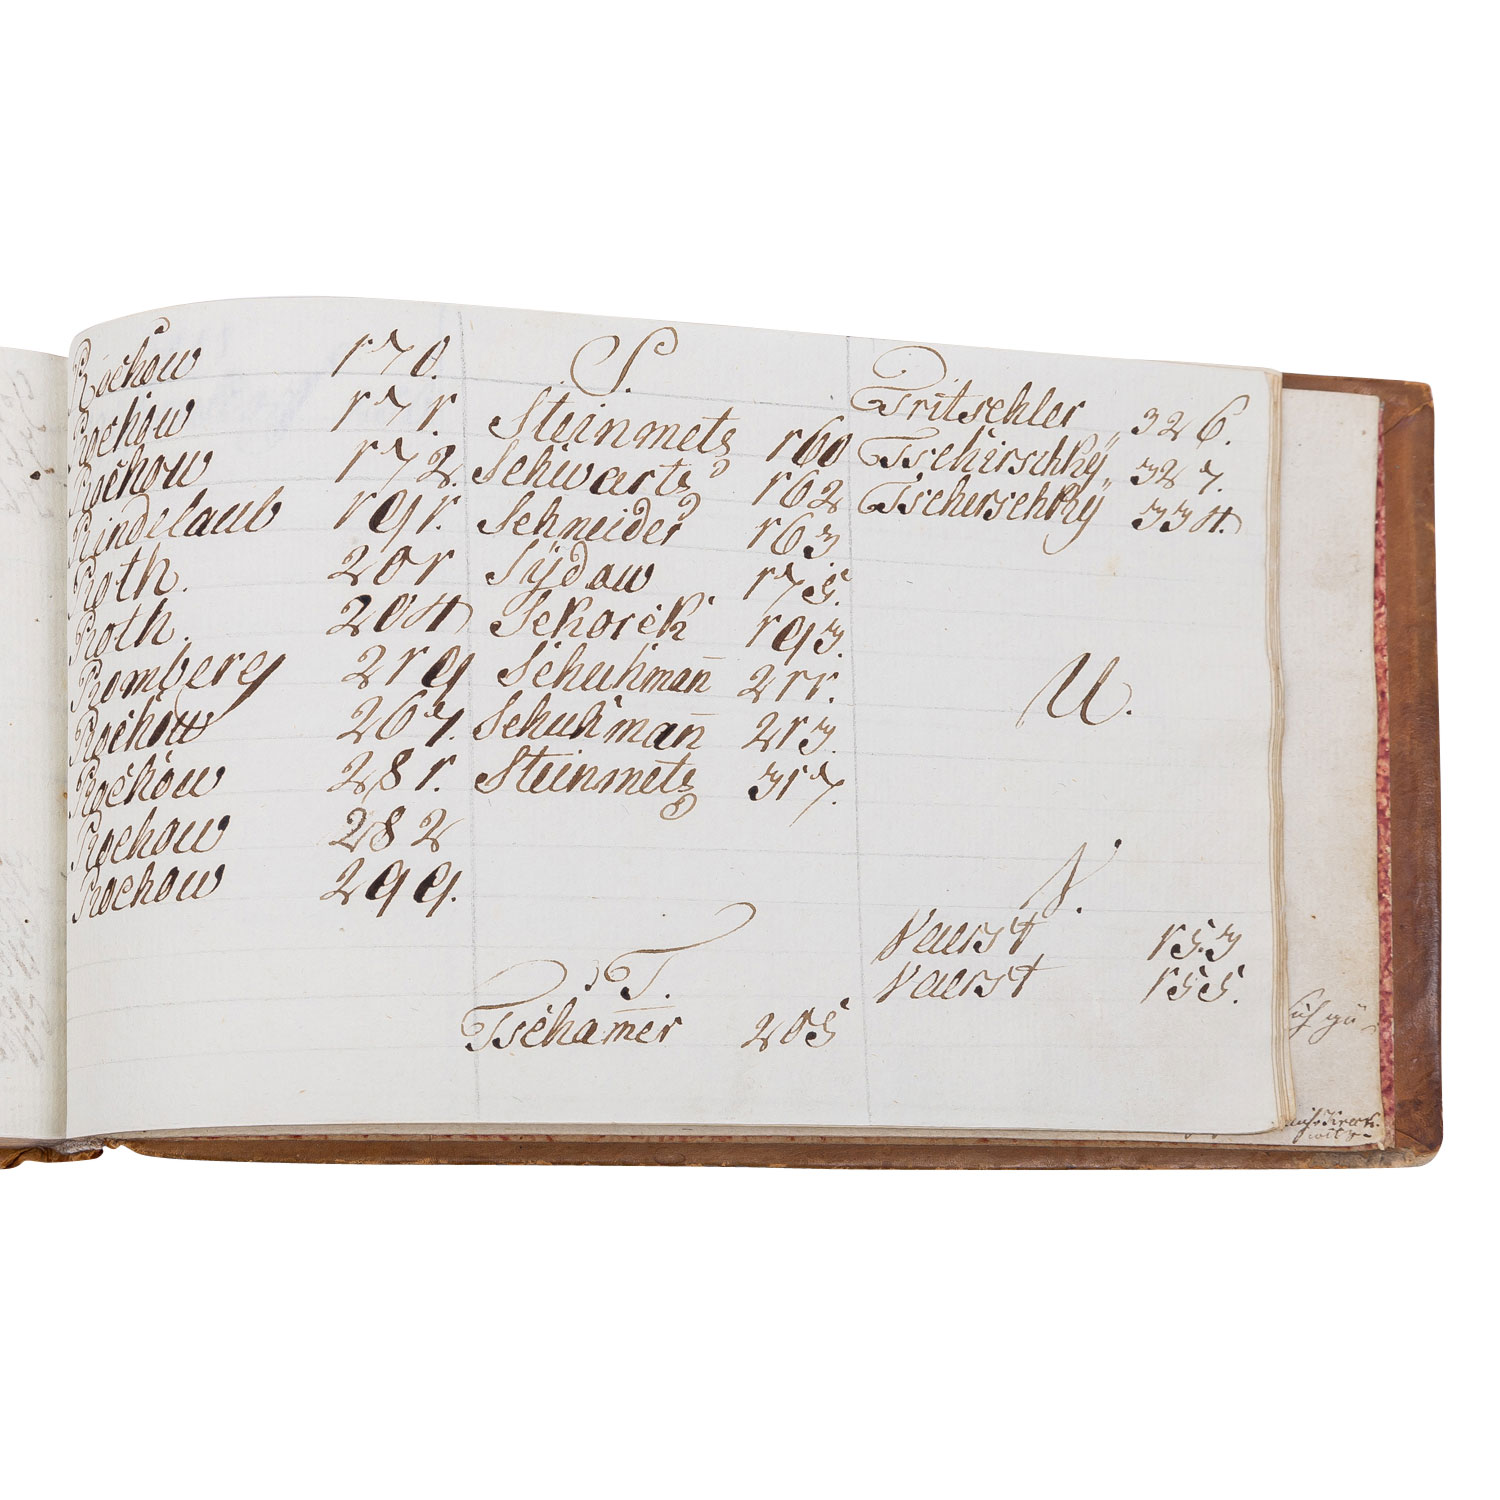 Rochow 170.
Rochow 171.
Rochow 172.
Rindelaub 191.
Roth. 201
Roth. 204
Romberg 219
Rochow 267.
Rochow 281.
Rochow 282
Rochow 299.
S.
Steinmetz 160
Schwartz 162
Schneider 163.
Sÿdow 175.
Sckorck 193.
Schuhman̄ 211.
Schuhman̄ 213.
Steinmetz 317.
T.
Tscham̄er 205
Tritschler 326.
Tschirschkÿ 327.
Tscherschkÿ 334.
U.
V.
Vaerst 153
Vaerst 155.